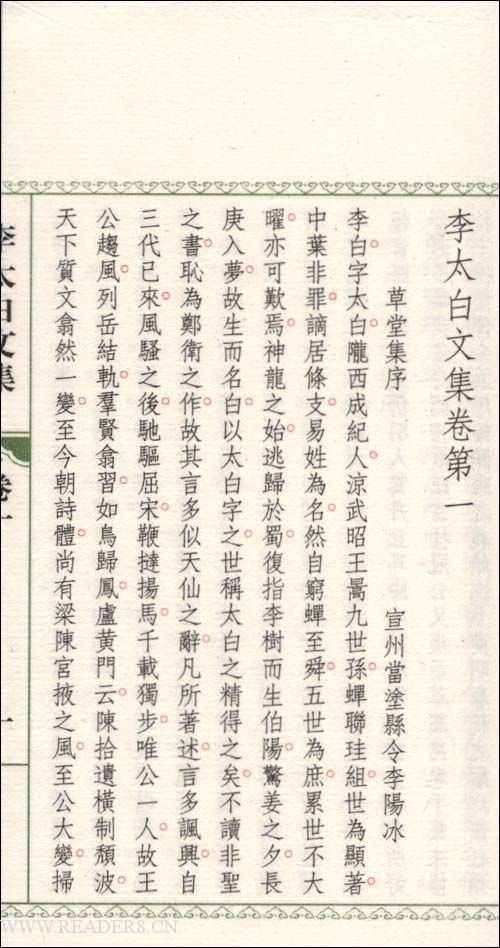 李太白文集卷第一
草堂集序
宣州當塗縣令李陽冰
李白字太白隴西成紀人涼武昭王暠九世孫蟬聯珪組世為顯著
中葉非罪謫居條支易姓為名然自窮蟬至舜五世為庶累世不大
曜亦可歎焉神龍之始逃歸於蜀復指李樹而生伯陽驚姜之夕長
庚入夢故生而名白以太白字之世稱太白之精得之矣不讀非聖
之書恥為鄭衛之作故其言多似天仙之辭凡所著述言多諷興自
三代已來風騷之後馳驅屈宋鞭撻揚馬千載獨步唯公一人故王
公趨風列岳結軌羣賢翕習如鳥歸鳳盧黃門云陳拾遺橫制頹波
天下質文翕然一變至今朝詩體尚有梁陳宮掖之風至公大變掃
李太白文集
卷一
一
WWW.READER8.CN